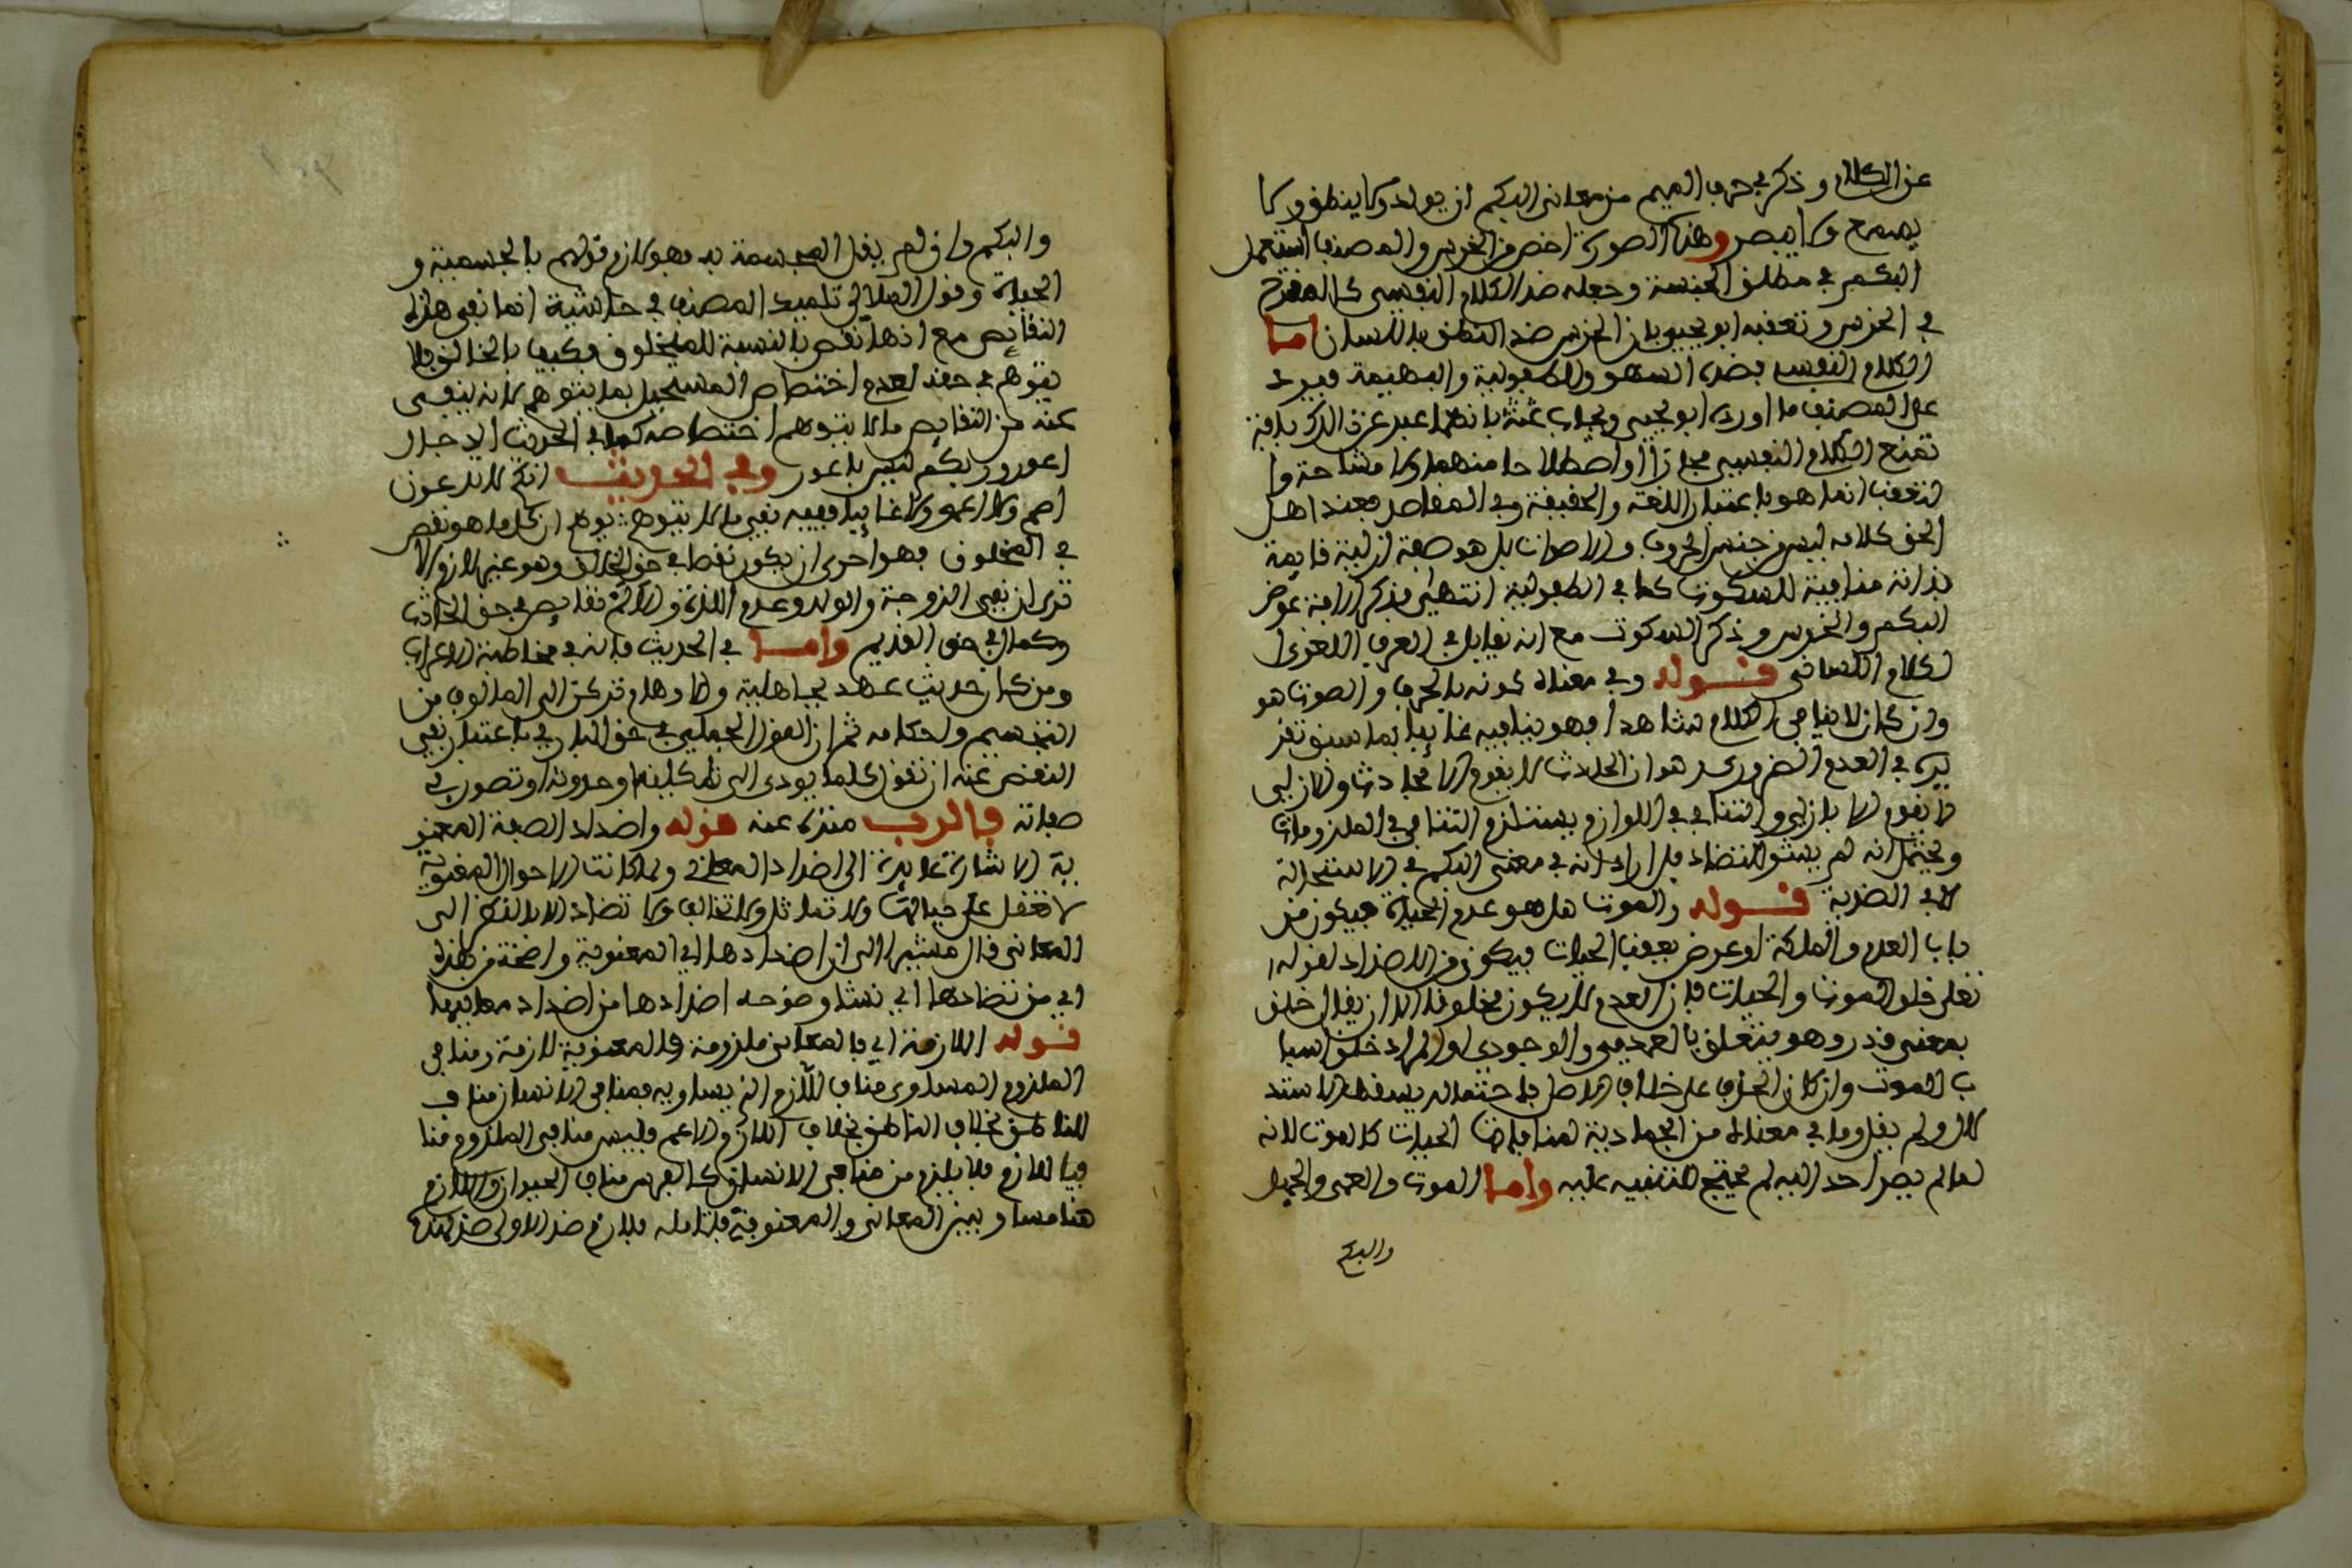 عن الكلام وذكر في حرف الميم من معاني البكم ان يولد ولا ينطق ولا
يسمع ولا يبصر وهذه الصورة اخص من الخرس والمصنف استعمل
البكم في مطلق الخبسة وجعله ضد الكلام النفسي كالمقترح
في الخرس وتعقبه ابو يحيى بان الخرس ضد النطق باللسان اما
الكلام النفسي فضده السهو والطفولية والبهيمة فيرد
على المصنف ما اورده ابو يحيى ويجاب عنه بانهما عبر عن الذكر بافة
تمنع الكلام النفسي مجازا او اصطلاحا منهما ولا مشاحة وا
لتعقب انما هو باعتبار اللغة والحقيقة وفي المقاصد فعند اهل
الحق كلامه ليس من جنس الحروف والاصوات بل هو صفة ازلية قايمة
بذاته منافية للسكوت كما في الطفولية انتهى فذكر الافة عوض
البكم والخرس وذكر السكوت مع انه يقابل في العرف اللغوي ا
لكلام اللساني قوله وفي معناه كونه بالحرف والصوت هو
وان كان لا ينافي الكلام شاهدا فهو ينافيه غايبا بما سبق تقر
يره في العدم الضروري هو ان الحادث لا يقوم الا بحادث والازلي
لا يقوم الا بازلي والتنافي في اللوازم يستلزم التنافي في الملزومات
ويحتمل انه لم يسق للتضاد بل اراد انه في معنى البكم في الاستحالة
لا في الضدية قوله والموت هل هو عدم الحياة فيكون من
باب العدم والملكة او عرض يعقب الحيات فيكون من الاضداد لقوله
تعلى خلق الموت والحيات فان العدم لا يكون مخلوقا الا ان يقال خلق
بمعنى قدر وهو يتعلق بالعدمي والوجودي او المراد خلق اسبا
ب الموت وان كان الحذف على خلاف الاصل فاحتماله يسقط الاستد
لال ولم يقل وما في معناه من الجمادية لمنافاتها الحيات كالموت لانه
لما لم يصر احد اليه لم يحتج للتنبيه عليه واما الموت والعمى والجهل
والبكم
والبكم وان لم يقل المجسمة به فهو لازم قولهم بالجسمية و
الحياة وقول الملالي تلميذ المصنف في حاشية انما نفى هذه
النقايص مع انها نقص بالنسبة للمخلوق فكيف بالخالق فلا
تتوهم في حقه لعدم اختصاص المستحيل بما يتوهم لانه ينفى
عنه من النقايص ما لا يتوهم اختصاصه كما في الحديث الدجال
اعور وربكم ليس باعور وفي الحديث انكم لا تدعون
اصم ولا اعمى ولا غايبا ففيه نفي ما لا يتوهم يوهم ان كل ما هو نقص
في المخلوق فهو احرى ان يكون نقصا في حق الخالق وهو غير لازم الا
ترى ان نفي الزوجة والولد وعدم اللذة والالم نقايص في حق الحادث
وكمال في حق القديم واما في الحديث فانه في مخاطبة الاعراب
ومن كان حديث عهد بجاهلية والاوهام تركن الى المالوف من
التجسيم واحكامه ثم ان القول الجملي في حق الباري باعتبار نفي
النقص عنه ان تقول كلما يودي الى تشكيله او حدوثه او تصور في
صفاته فالرب منزه عنه قوله واضداد الصفة المعنو
ية الاشارة عايدة الى اضداد المعاني ولما كانت الاحوال المعنوية
لا تعقل على حيالها ولا تماثل ولا تخالف ولا تضاد الا بالنظر الى
المعاني قال مشيرا الى ان اضدادها اي المعنوية واضحة من هذه
اي من تضادها اي نشا وضوح اضدادها من اضداد معانيها
قوله اللازمة اي فالمعاني ملزومة والمعنوية لازمة ومنافي
الملزوم المساوي مناف للازم الذي يساويه فمنافي الانسان مناف
للناطق بخلاف الناطق بخلاف اللازم الاعم فليس منافي الملزوم منا
فيا للازم فلا يلزم من منافي الانسان كالفرس مناف الحيوان واللازم
هنا مساو وبين المعاني والمعنوية فتامله فلازم ضد الاولى ضد لهذه